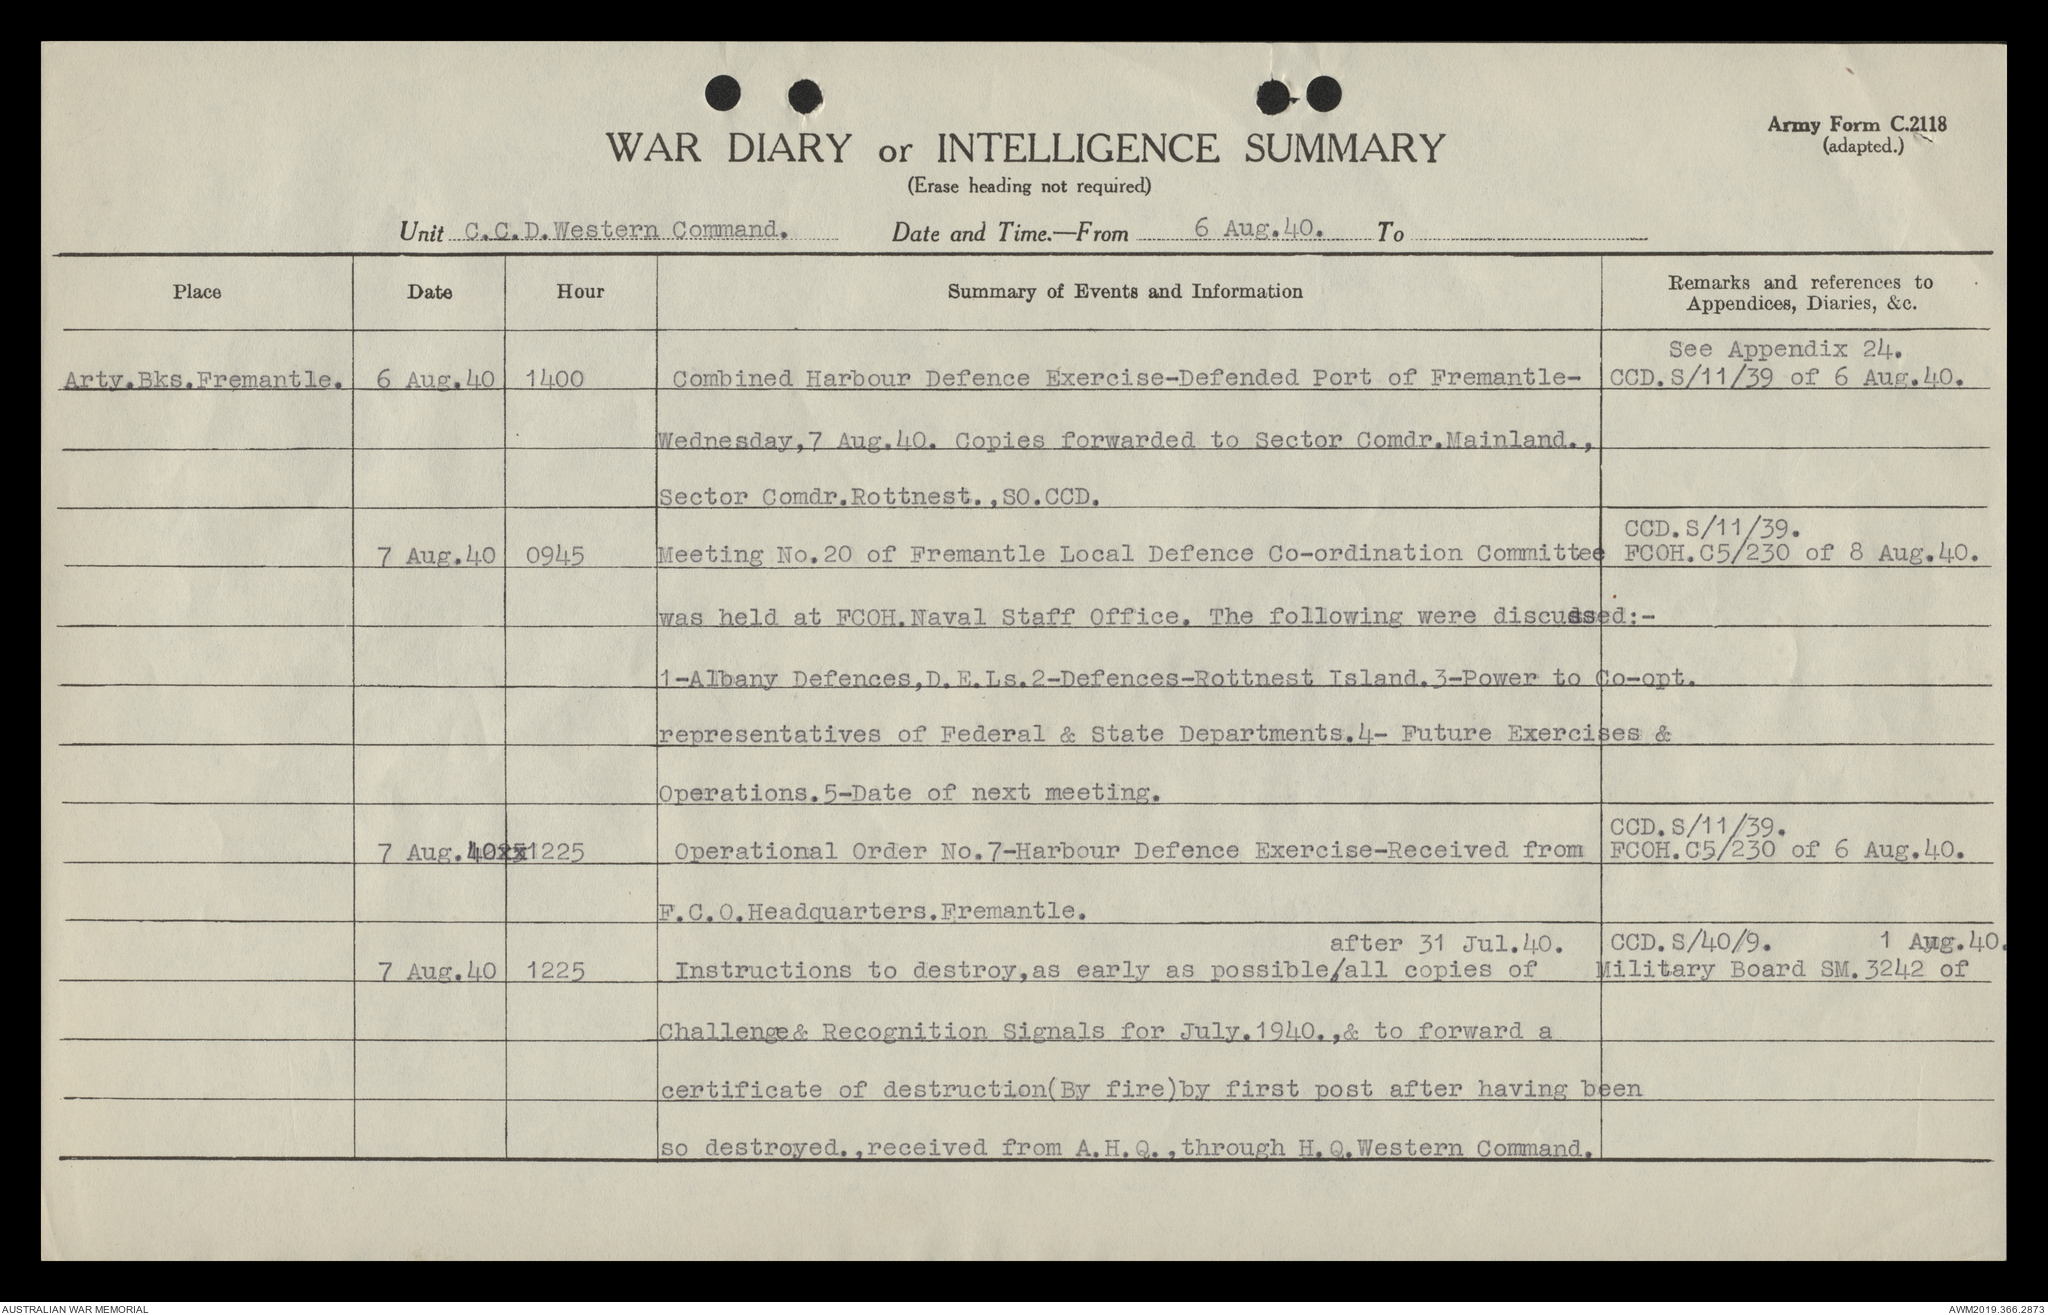 WAR DIARY or INTELLIGENCE SUMMARY
Army Form C.2118
(adapted.)
(Erase heading not required)
Unit C.C.D.Western Command. Date and Time.—From 6 Aug.40. To
Place Date Hour Summary of Events and Information Remarks and references to
Appendices, Diaries, &c.
See Appendix 24.
Arty.Bks.Fremantle. 6 Aug.40 1400 Combined Harbour Defence Exercise-Defended Port of Fremantle- CCD.S/11/39 of 6 Aug.40.
Wednesday,7 Aug.40. Copies forwarded to Sector Comdr.Mainland.,
Sector Comdr.Rottnest.,SO.CCD.
CCD.S/11/39.
7 Aug.40 0945 Meeting No.20 of Fremantle Local Defence Co-ordination Committee FCOH.C5/230 of 8 Aug.40.
was held at FCOH.Naval Staff Office. The following were discussed:-
1-Albany Defences,D.E.Ls.2-Defences-Rottnest Island.3-Power to Co-opt.
representatives of Federal & State Departments.4- Future Exercises &
Operations.5-Date of next meeting.
CCD.S/11/39.
7 Aug.40 1225 Operational Order No.7-Harbour Defence Exercise-Received from FCOH.C5/230 of 6 Aug.40.
F.C.O.Headquarters.Fremantle.
after 31 Jul.40. CCD.S/40/9. 1 Aug.40.
7 Aug.40 1225 Instructions to destroy,as early as possible/all copies of Military Board SM.3242 of
Challenge& Recognition Signals for July.1940.,& to forward a
certificate of destruction(By fire)by first post after having been
so destroyed.,received from A.H.Q.,through H.Q.Western Command.
AUSTRALIAN WAR MEMORIAL AWM2019.366.2873